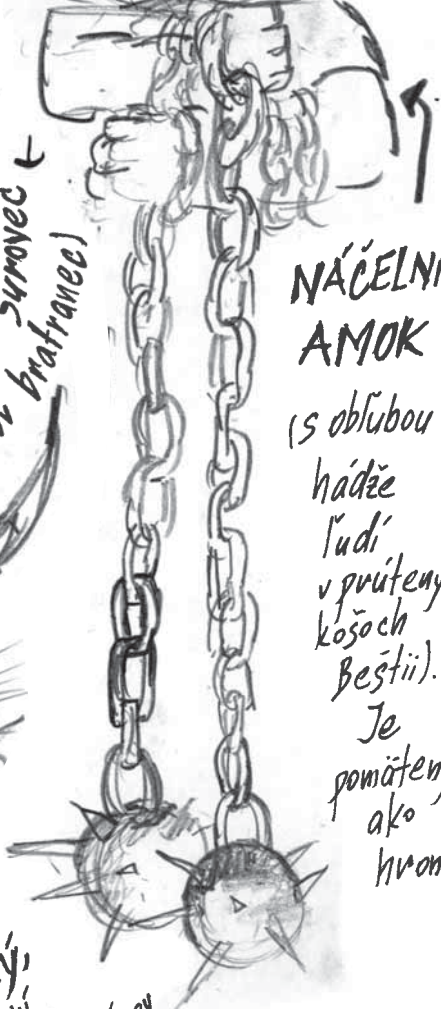 surovec
bratranec)
NÁČELNI
AMOK
(s obľubou
hádže
ľudí
v prúteny
košoch
Beštii).
Je
pomäteny
ako
hrom